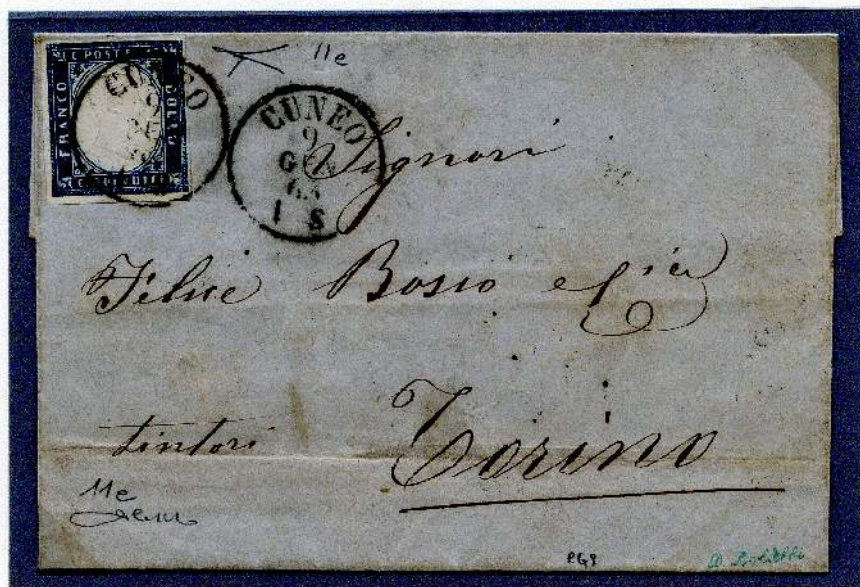 C. POSTE
11e
FRANCO
BOLLO
CUNEO
CUNEO
9
GEN
63
1 S
Signori
Felice Bosio e C.ia
tintori
Torino
11e